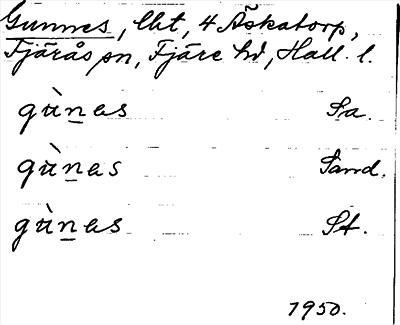 Gunnes, lht, 4 Äskatorp,
Fjärås sn, Fjäre hd, Hall. l.
gùnas Sa.
gùnas Sand.
gùnas St.
1950.